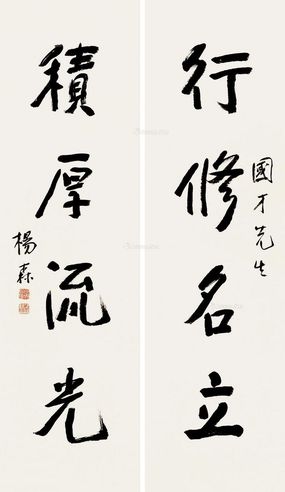 國才先生
行修名立
積厚流光
楊森